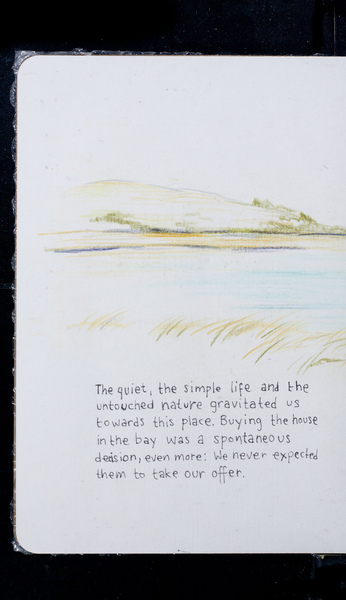 The quiet, the simple life and the
untouched nature gravitated us
towards this place. Buying the house
in the bay was a spontaneous
decision, even more: We never expected
them to take our offer.